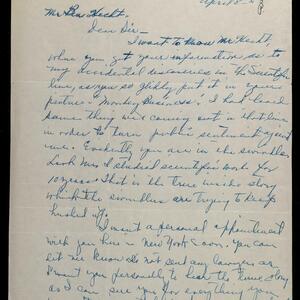 April 8 -
Mr Ben Hecht,
Dear Sir -
I want to know Mr Hecht,
where you got your information as to
my accidental discoveries in the scientific
line, as you so glibly put it in your
picture - "Monkey Business". I had heard
some thing was coming out in that line
in order to turn public sentiment against
me. Evidently you are in the swindle.
Look Mr. I studied scientific work for
10 years. That is the true inside story
which the swindlers are trying to keep
hushed up.
I want a personal appointment
with you here - New York soon. You can
let me know do not send any lawyer as
I want you personally to hear the true story
as I can sue you for everything you